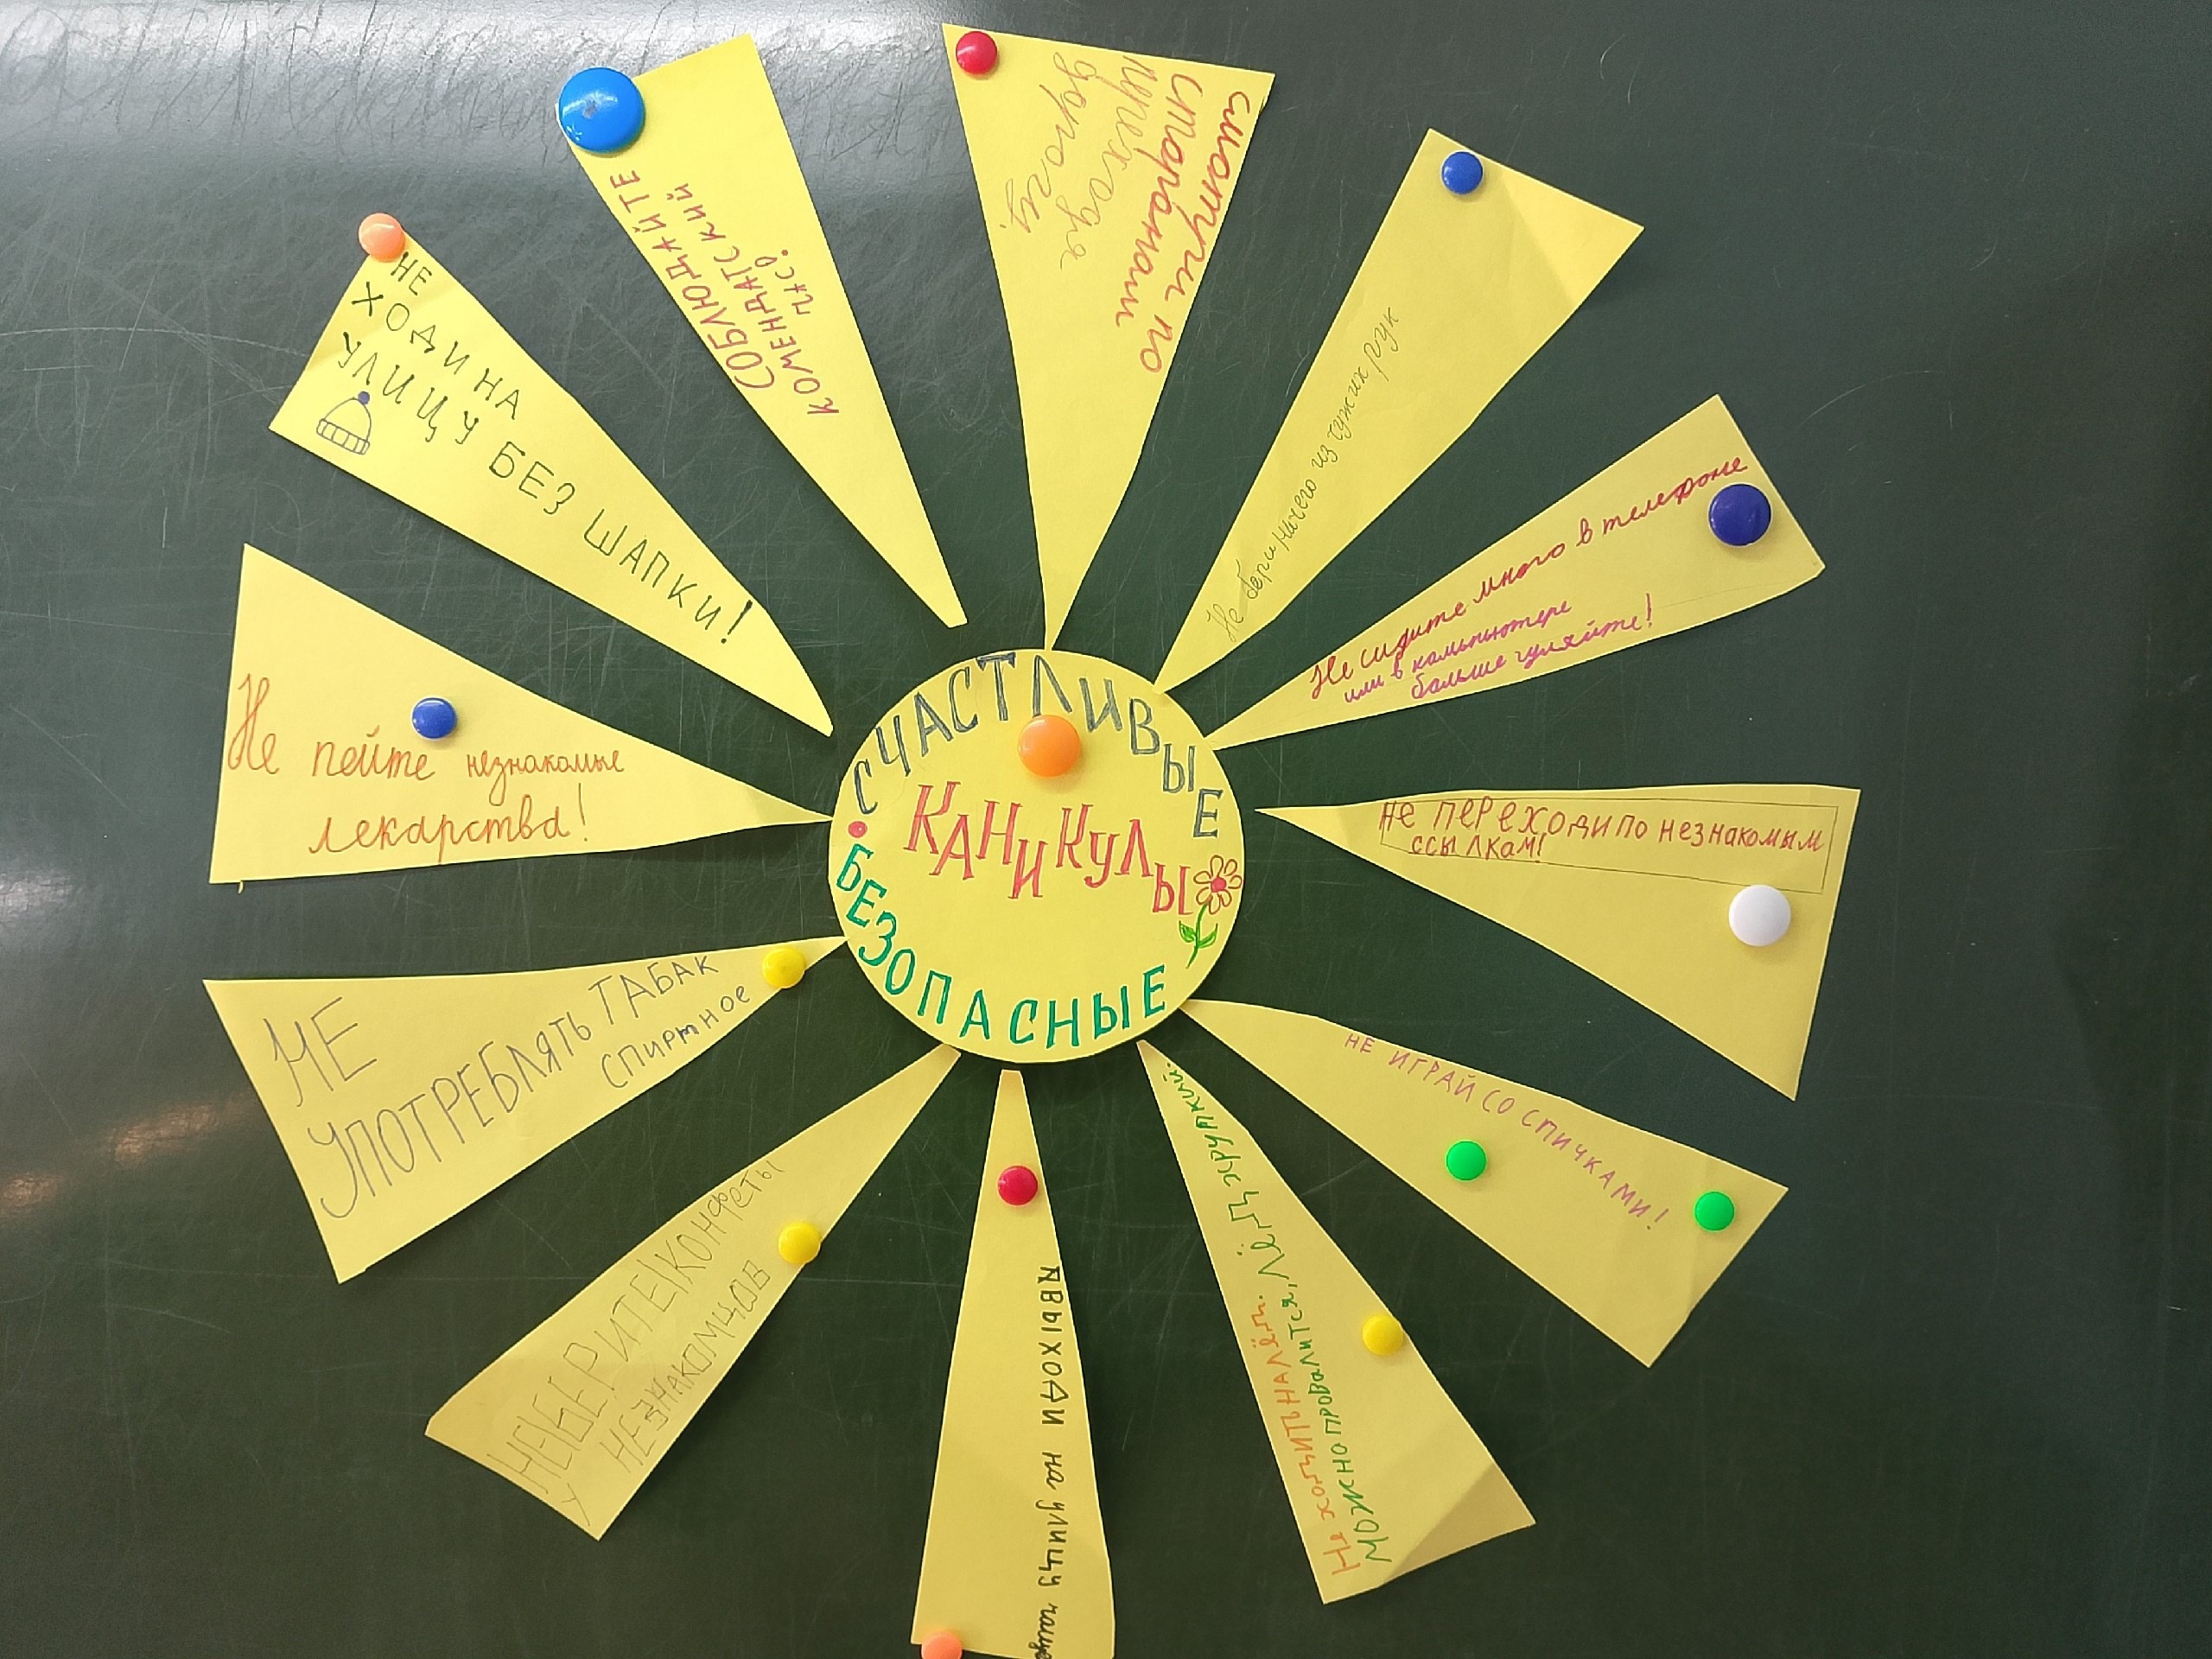 СЧАСТЛИВЫЕ
КАНИКУЛЫ
БЕЗОПАСНЫЕ
смотри по
сторонам
переходя
дорогу
Не бери ничего из чужих рук
Не сидите много в телефоне
или в компьютере
больше гуляйте!
НЕ ПЕРЕХОДИ ПО НЕЗНАКОМЫМ
ССЫЛКАМ!
НЕ ИГРАЙ СО СПИЧКАМИ!
Не ходить на лёд.
Можно провалится, лёд хрупкий.
ВЫХОДИ на улицу чаще
НЕ БЕРИТЕ КОНФЕТЫ
У НЕЗНАКОМЦОВ
НЕ
УПОТРЕБЛЯТЬ ТАБАК
СПИРТНОЕ
Не пейте незнакомые
лекарства!
НЕ
ХОДИ НА
УЛИЦУ БЕЗ ШАПКИ!
СОБЛЮДАЙТЕ
КОМЕНДАТСКИЙ
ЧАС!